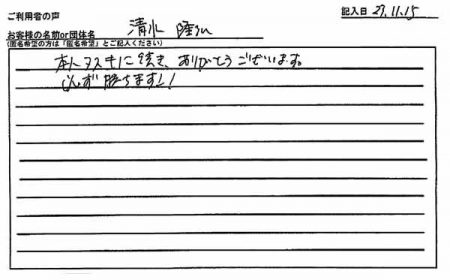 ご利用者の声
記入日 27.11.15
お客様の名前or団体名 清水 隆弘
(匿名希望の方は「匿名希望」とご記入ください)
本人タスキに続き、ありがとうございます。
必ず勝ちます!!